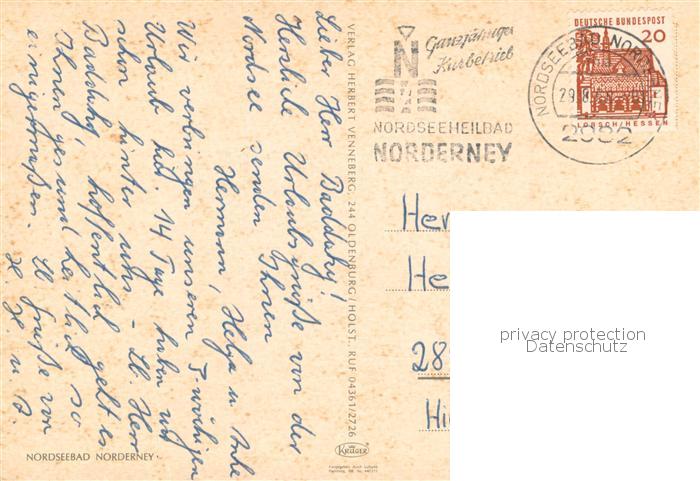 Lieber Herr Baddaky!
Herzliche Urlaubsgrüße von der
Nordsee senden Ihnen
Hermann, Helga u. Anke
Wir verbringen unseren 3-wöchigen
Urlaub hier. 14 Tage haben wir
schon hinter uns. - Lb. Herr
Baddaky, hoffentlich geht es
Ihnen gesundheitlich so
einigermaßen. Lb. Grüße von
H. H. u. A.
VERLAG HERBERT VENNEBERG, 244 OLDENBURG/HOLST. RUF 04361/2726
NORDSEEBAD NORDERNEY
KRÜGER
Ganzjähriger
Kurbetrieb
N
NORDSEEHEILBAD
NORDERNEY
NORDSEEBAD NORD
29.8
2982
DEUTSCHE BUNDESPOST
20
LORSCH/HESSEN
Her
He
28
Hi
privacy protection
Datenschutz